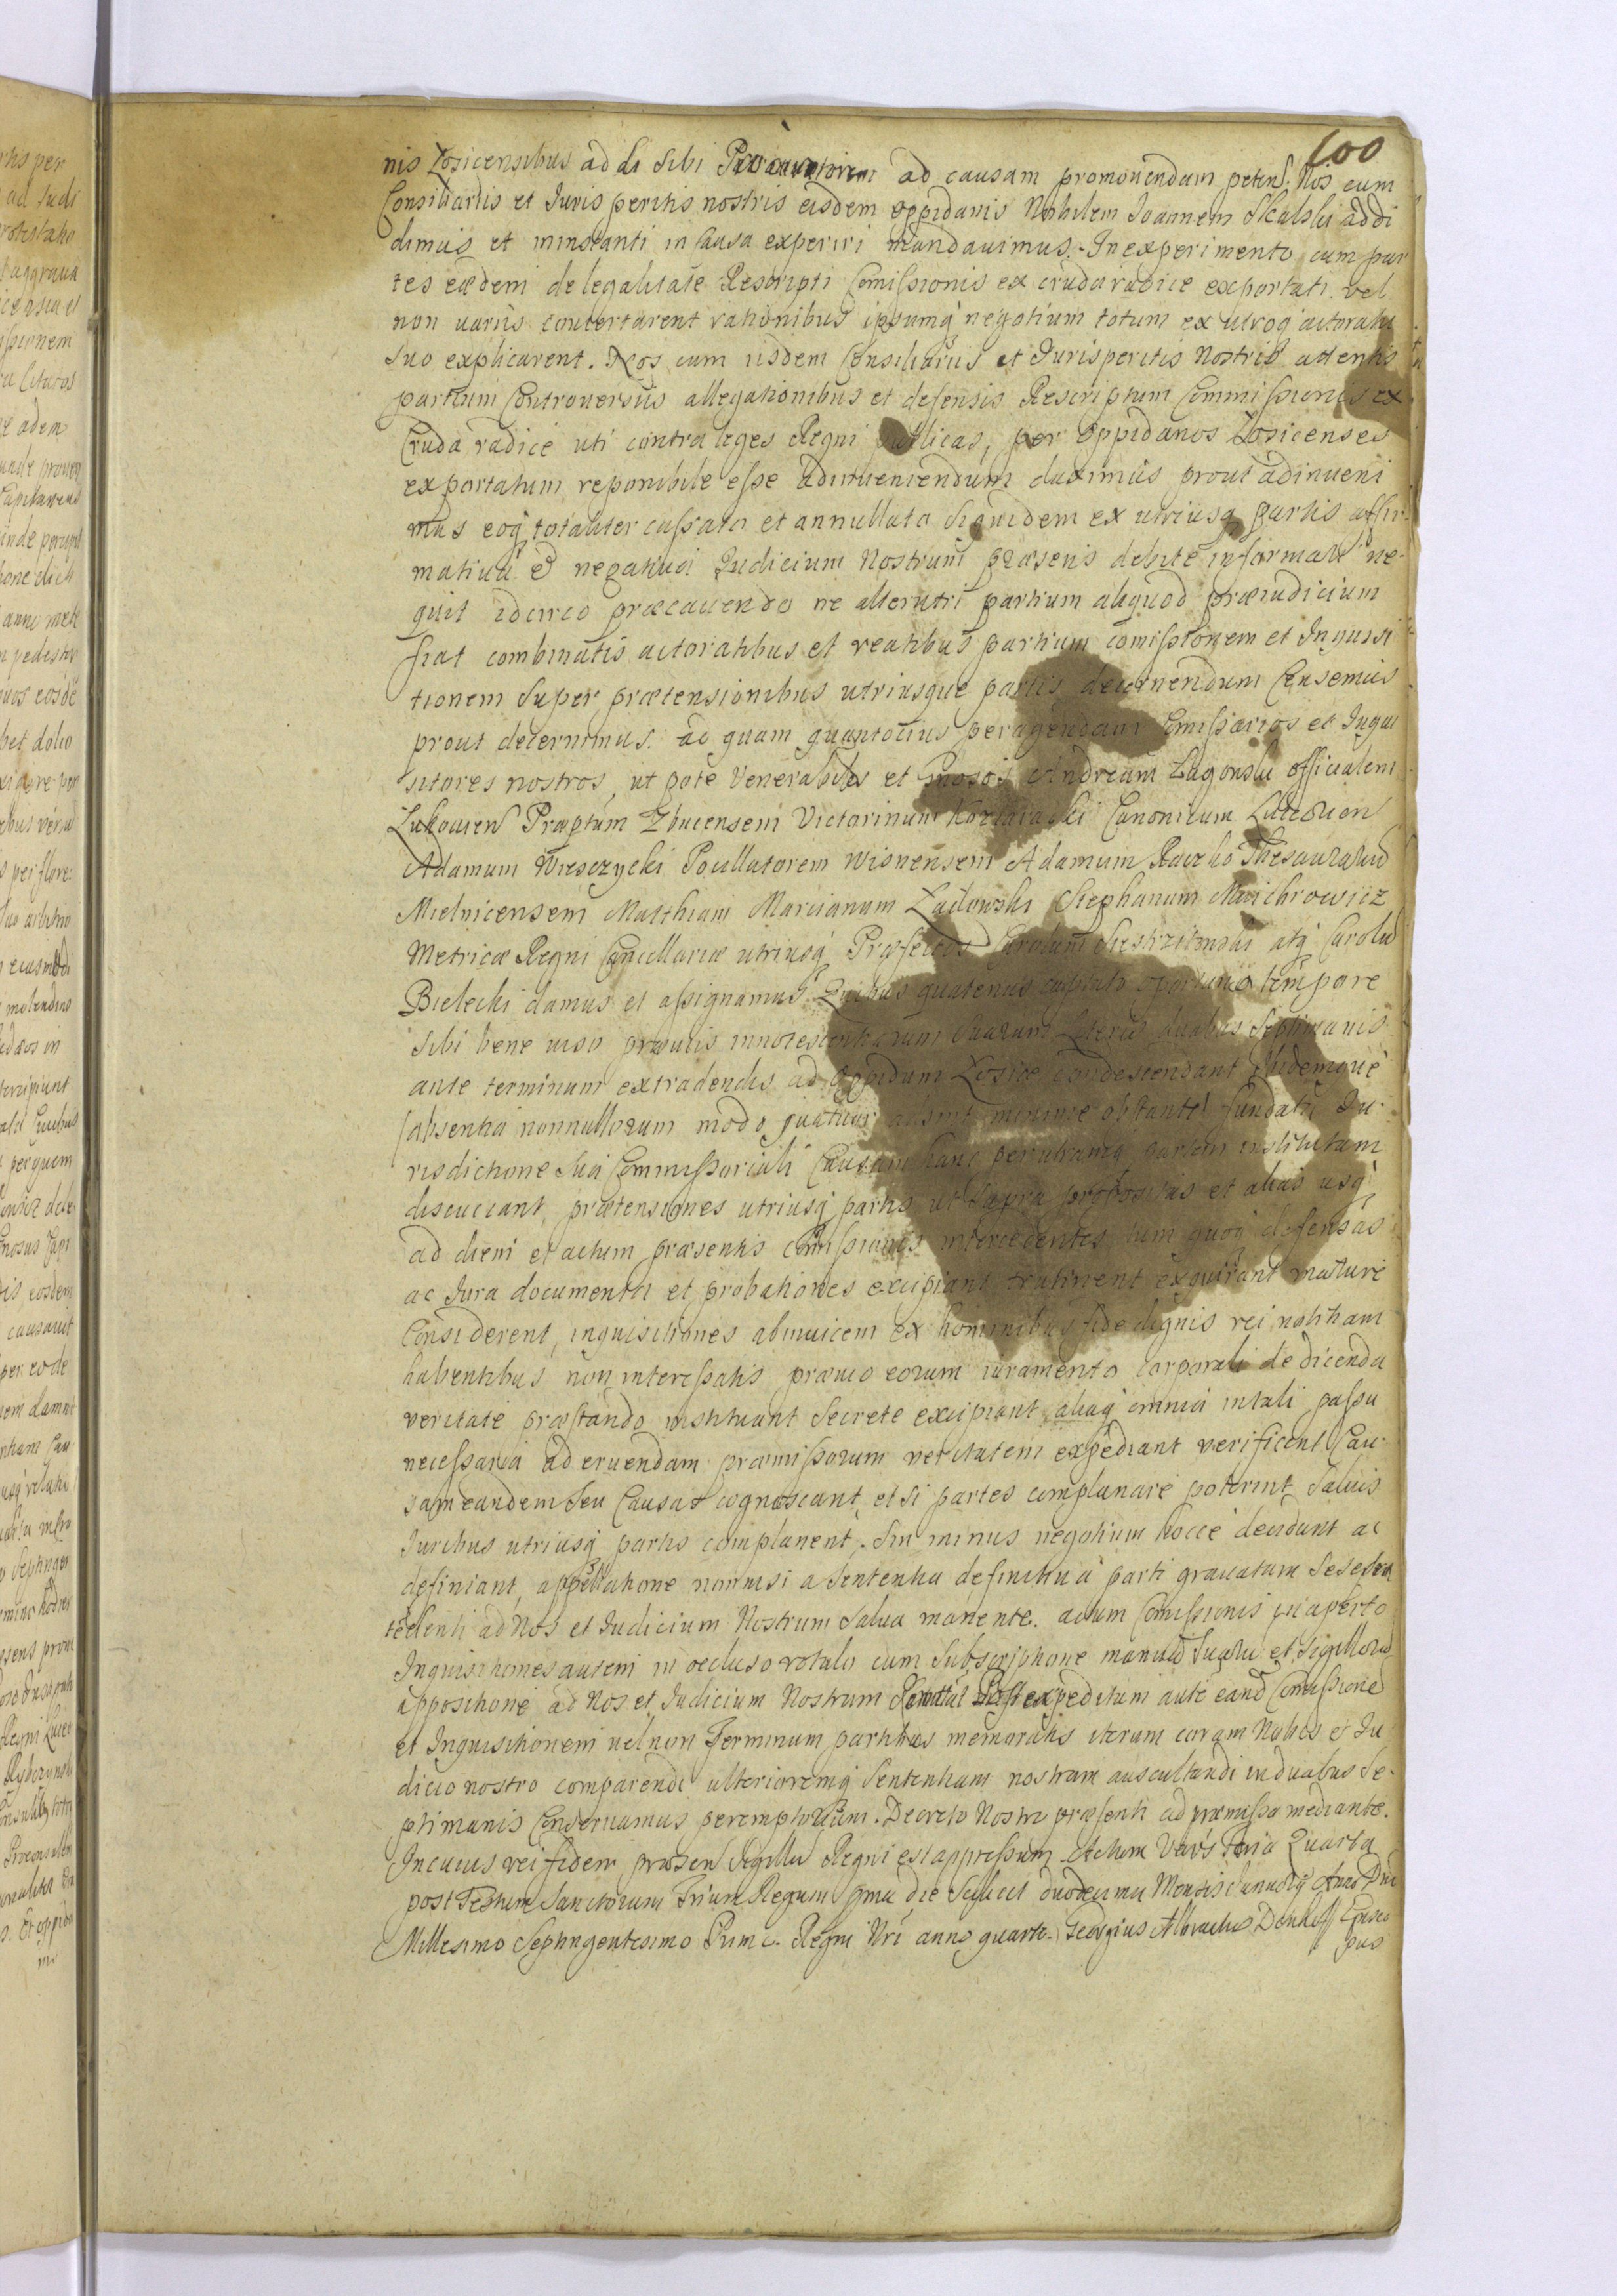 100
nis Łosicensibus addi sibi Procuratorem ad causam promovendum peten. Nos cum
Consiliariis et Iuris peritis nostris eisdem oppidanis Nobilem Joannem Skalski addi
dimus et in instanti in causa experiri mandavimus. In experimento cum par
tes eædem de legalitate Rescripti Comissionis ex cruda radice exportati vel
non variis concertarent rationibus ipsumq negotium totum ex utroq actoratu
suo explicarent. Nos cum iisdem Consiliariis et Iurisperitis Nostris attentis
partium Controversiis allegationibus et defensis Rescriptum Commissionis ex
Cruda radice uti contra leges Regni publicas, per Oppidanos Łosicenses
exportatum reponibile esse adinveniendum duximus prout adinveni
mus eoq totaliter cassato et annullato Siquidem ex utriusq partis affir
mativa et negativa Iudicium Nostrum præsens debite informari ne
quit idcirco præcavendo ne alterutri partium aliquod præiudicium
fiat combinatis actoratibus et reatibus partium comissionem et Inquisi
tionem super prætensionibus utriusque partis decernendum Censemus
prout decernimus. ac quam quantocius peragendam Comissarios et Inqui
sitores nostros, ut pote Venerabiles et Gnosos Andream Zagorski officialem
Lukovien Præptum Zbucensem Victorinum Canonicum Luceorien
Adamum Wieszczycki Pocillatorem Wisnensem Adamum Raczko Thesaurariu
Mielnicensem Matthiam Marcianum Łaidowski Stephanum Maichrowicz
Metricæ Regni Cancellariæ utriusq Præfectos Carolum atq Carolu
Bielecki damus et assignamus. Quibus quatenus capiati oportuno tempore
sibi bene viso præviis innotescentiarum suarum Literis duabus Septimanis
ante terminum extradendis ad Oppidum Łosice condescendant Ibidemque
(absentia nonnullorum modo quatuor adsint minime obstante) fundata Iu
risdictione sua Commissoriali Causam hanc per utramq partem institutam
discutiant, prætensiones utriusq partis ut supra propositas et alias usq
ad diem et actum præsentis Comissionis intercedentes, tum quoq defensas
ac Iura documenta et probationes excipiant trutinent exquirant mature
Considerent, inquisitiones abinvicem ex hominibus fide dignis rei notitiam
habentibus non interessatis prævio eorum iuramento corporali de dicenda
veritate præstando instituant secrete excipiant aliaq omnia in tali passu
necessaria ad eruendam præmissorum veritatem expediant verificent Cau
sam eandem seu Causas cognoscant, et si partes complanare poterint salvis
Iuribus utriusq partis complanent. Sin minus negotium hocce decidant ac
definiant, appellatione nonnisi a sententia definitiva parti gravatam sese sen
tienti ad Nos et Iudicium Nostrum salva manente. actum Comissionis in aperto
Inquisitiones autem in occluso rotulo cum subscriptione manuu suaru et sigilloru
appositione ad Nos et Iudicium Nostrum Post expeditam aute eand Comissione
et Inquisitionem vel non Terminum partibus memoratis iterum coram Nobis et Iu
dicio nostro comparendi ulterioremq sententiam nostram auscultandi in duabus Se
ptimanis Conservamus peremptorium. Decreto Nostri præsenti ad præmissa mediante.
In cuius rei fidem præsen Sigillu Regni est appressum. Actum Vars Feria Quarta
post Festum Sanctorum Trium Regum pma die scilicet duodecima Mensis Ianuarij Anno Dni
Millesimo Septingentesimo Primo. Regni Nri anno quarto. Georgius Albrachus Denhoff Episco
pus